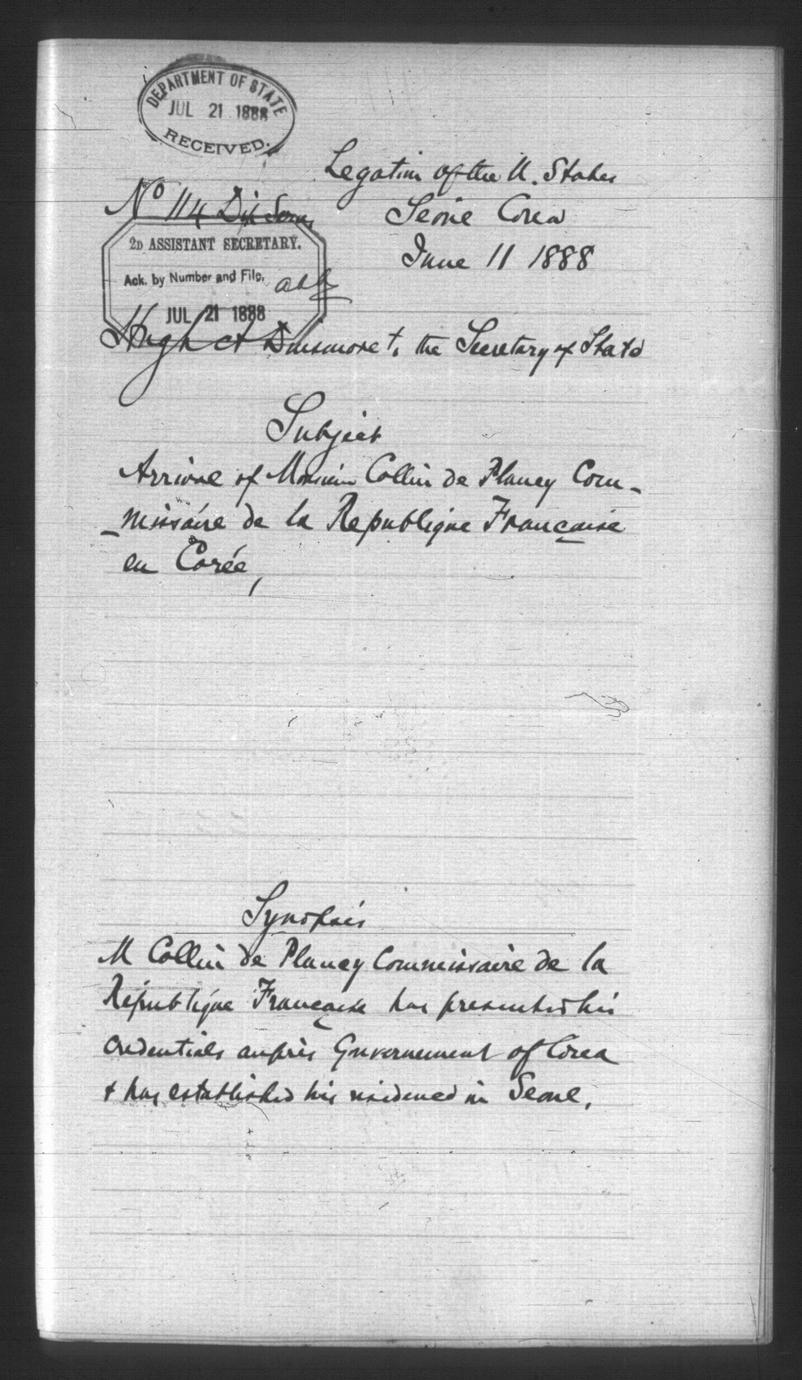 DEPARTMENT OF STATE
JUL 21 1888
RECEIVED.
Legation of the U. States
No 114 Dip Series
Seoul Corea
2D ASSISTANT SECRETARY.
June 11 1888
Ack. by Number and File,
JUL 21 1888
Hugh A Dinsmore to the Secretary of State
Subject
Arrival of Monsieur Collin de Plancy Com-
-missaire de la Republique Française
en Corée,
Synopsis
M Collin de Plancy Commissaire de la
République Française has presented his
credentials auprès Gouvernement of Corea
& has established his residence in Seoul.